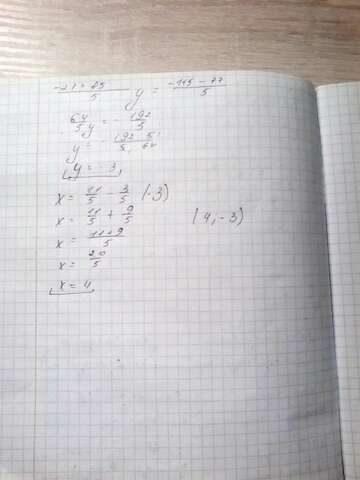 -21+85/5 y = -115-77/5
64/5 y = -192/5
y = -192·5/5·64
y = -3
x = 11/5 - 3/5 (-3)
x = 11/5 + 9/5
x = 11+9/5
(4, -3)
x = 20/5
x = 4